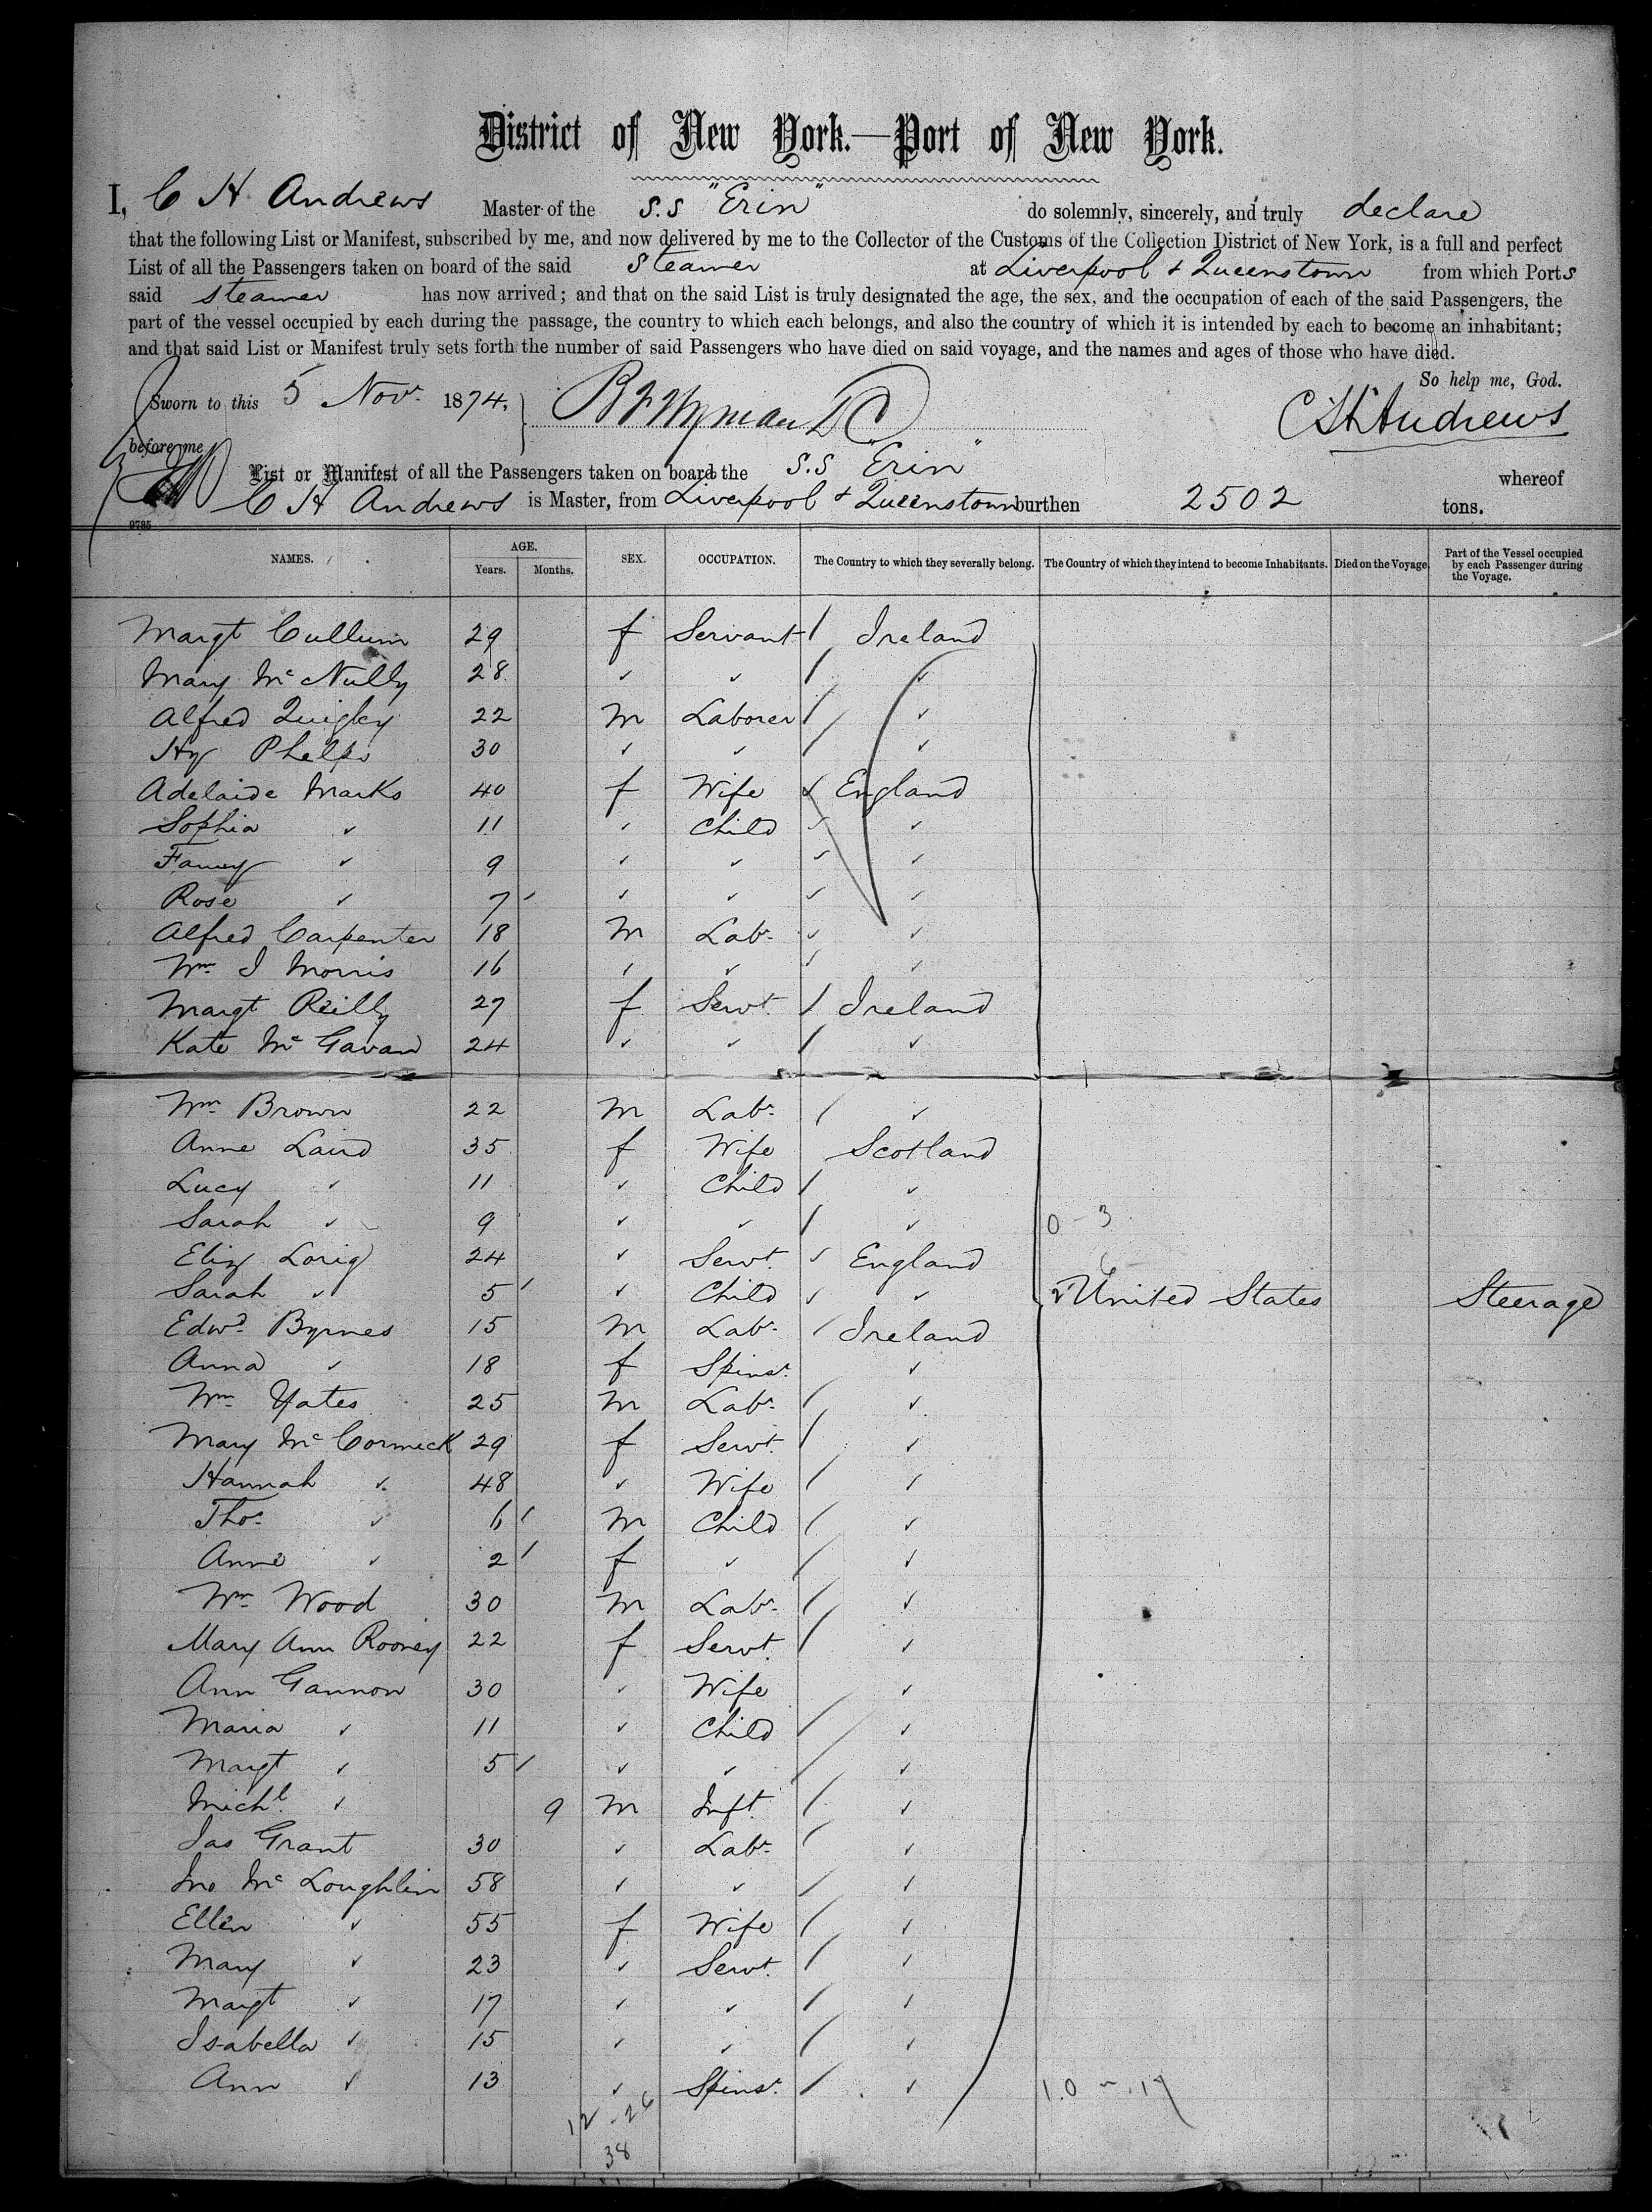 District of New York.—Port of New York.
I, C H Andrews Master of the S.S "Erin" do solemnly, sincerely, and truly declare
that the following List or Manifest, subscribed by me, and now delivered by me to the Collector of the Customs of the Collection District of New York, is a full and perfect
List of all the Passengers taken on board of the said Steamer at Liverpool & Queenstown from which Ports
said Steamer has now arrived; and that on the said List is truly designated the age, the sex, and the occupation of each of the said Passengers, the
part of the vessel occupied by each during the passage, the country to which each belongs, and also the country of which it is intended by each to become an inhabitant;
and that said List or Manifest truly sets forth the number of said Passengers who have died on said voyage, and the names and ages of those who have died.
So help me, God.
Sworn to this 5 Nov. 1874,
before me
C H Andrews
List or Manifest of all the Passengers taken on board the S.S "Erin" whereof
C H Andrews is Master, from Liverpool & Queenstown burthen 2502 tons.
9785
NAMES. AGE. SEX. OCCUPATION. The Country to which they severally belong. The Country of which they intend to become Inhabitants. Died on the Voyage. Part of the Vessel occupied by each Passenger during the Voyage.
Years. Months.
Margt Cullum 29 f Servant / Ireland
Mary Mc Nully 28 ✓ ✓ / ✓
Alfred Quigley 22 M Laborer / ✓
Hy Phelps 30 ✓ ✓ / ✓
Adelaide Marks 40 f Wife ✓ England
Sophia ✓ 11 ✓ Child ✓ ✓
Fanny ✓ 9 ✓ ✓ ✓ ✓
Rose ✓ 7 ✓ ✓ ✓ ✓
Alfred Carpenter 18 M Labr ✓ ✓
Wm J Morris 16 ✓ ✓ ✓ ✓
Margt Reilly 27 f Servt / Ireland
Kate Mc Gavan 24 ✓ ✓ / ✓
Wm Brown 22 M Labr / ✓
Anne Laird 35 f Wife Scotland
Lucy ✓ 11 ✓ Child / ✓
Sarah ✓ 9 ✓ ✓ / ✓ 0 - 3
Eliz Lorig 24 ✓ Servt ✓ England
Sarah ✓ 5 ✓ Child ✓ ✓ United States Steerage
Edwd Byrnes 15 M Labr / Ireland
Anna ✓ 18 f Spinsr ✓
Wm Yates 25 M Labr / ✓
Mary Mc Cormick 29 f Servt / ✓
Hannah ✓ 48 ✓ Wife / ✓
Thos ✓ 6 M Child / ✓
Anne ✓ 2 f ✓ / ✓
Wm Wood 30 M Labr / ✓
Mary Ann Rooney 22 f Servt / ✓
Ann Gannon 30 ✓ Wife ✓
Maria ✓ 11 ✓ Child / ✓
Margt ✓ 5 ✓ ✓ / ✓
Michl ✓ 9 M Inft / ✓
Jas Grant 30 ✓ Labr / ✓
Jno Mc Loughlin 58 ✓ ✓ / ✓
Ellen ✓ 55 f Wife / ✓
Mary ✓ 23 ✓ Servt / ✓
Margt ✓ 17 ✓ ✓ / ✓
Isabella ✓ 15 ✓ ✓ / ✓
Ann ✓ 13 ✓ Spinsr / ✓
12 - 26
38